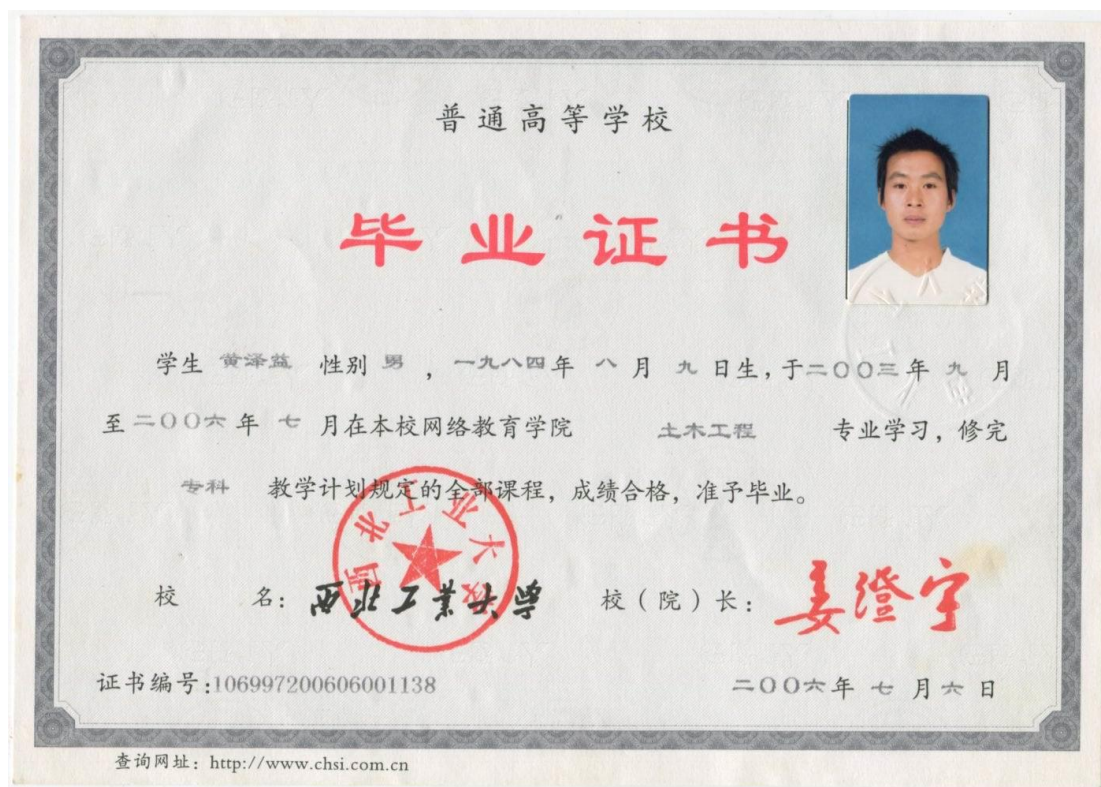 普通高等学校
毕业证书
学生 黄泽益 性别 男 ，一九八四年 八 月 九 日生，于二〇〇三年 九 月
至二〇〇六年 七 月在本校网络教育学院 土木工程 专业学习，修完
专科 教学计划规定的全部课程，成绩合格，准予毕业。
西北工业大学
校 名： 西北工业大学 校（院）长： 姜澄宇
证书编号：106997200606001138 二〇〇六年 七 月 六 日
查询网址：http://www.chsi.com.cn